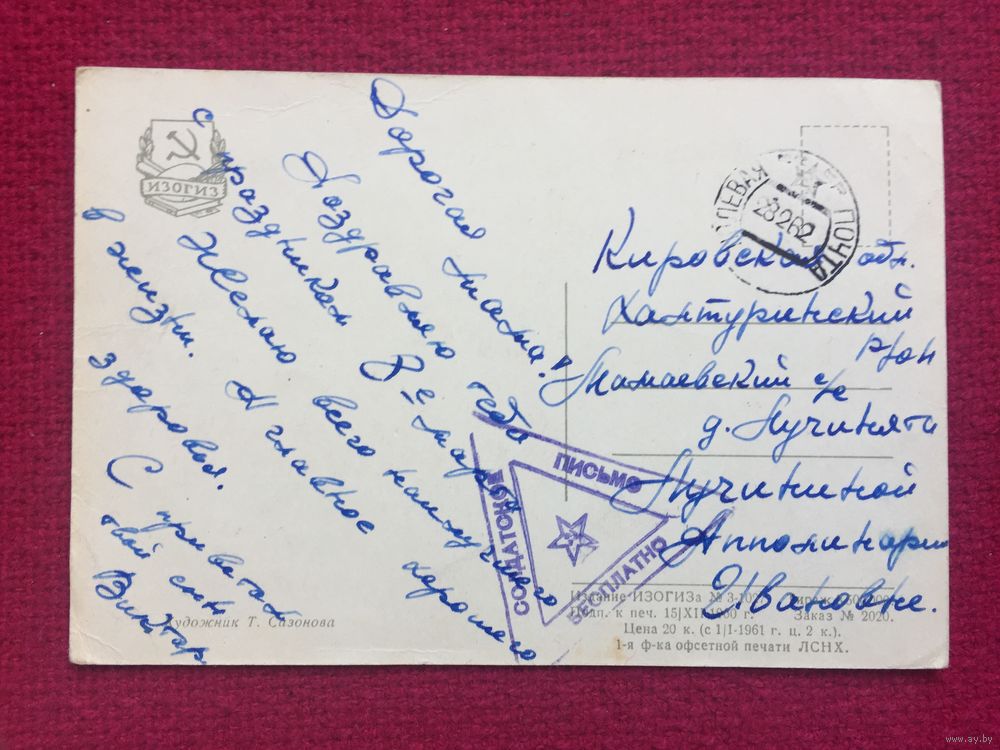 ИЗОГИЗ
Дорогая мама!
Поздравляю тебя
с праздником 8-е марта
Желаю всего наилучшего
в жизни. А главное хорошего
здоровья.
С приветом
твой сын
Виктор
ПОЛЕВАЯ ПОЧТА
28262
Кировская обл.
Халтуринский
р/он
Мамаевский с/с
д. Лучиняти
Лучининой
Апполинарии
Ивановне.
СОЛДАТСКОЕ
ПИСЬМО
БЕСПЛАТНО
Художник Т. Сазонова
Издание ИЗОГИЗа
Подп. к печ. 15|XII-1960 г. Заказ № 2020.
Цена 20 к. (с 1/I-1961 г. ц. 2 к.).
1-я ф-ка офсетной печати ЛСНХ.
www.ay.by